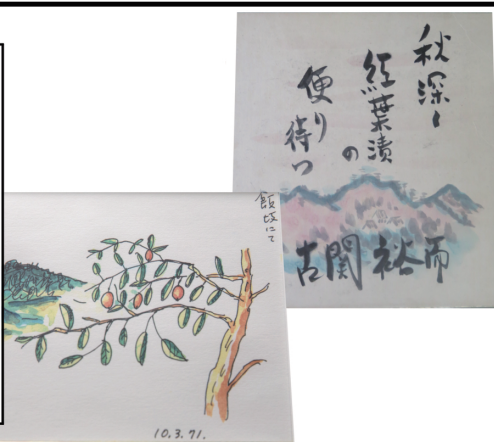 秋深し
紅葉漬
の
便り待つ
古関裕而
飯坂にて
10.3.71.